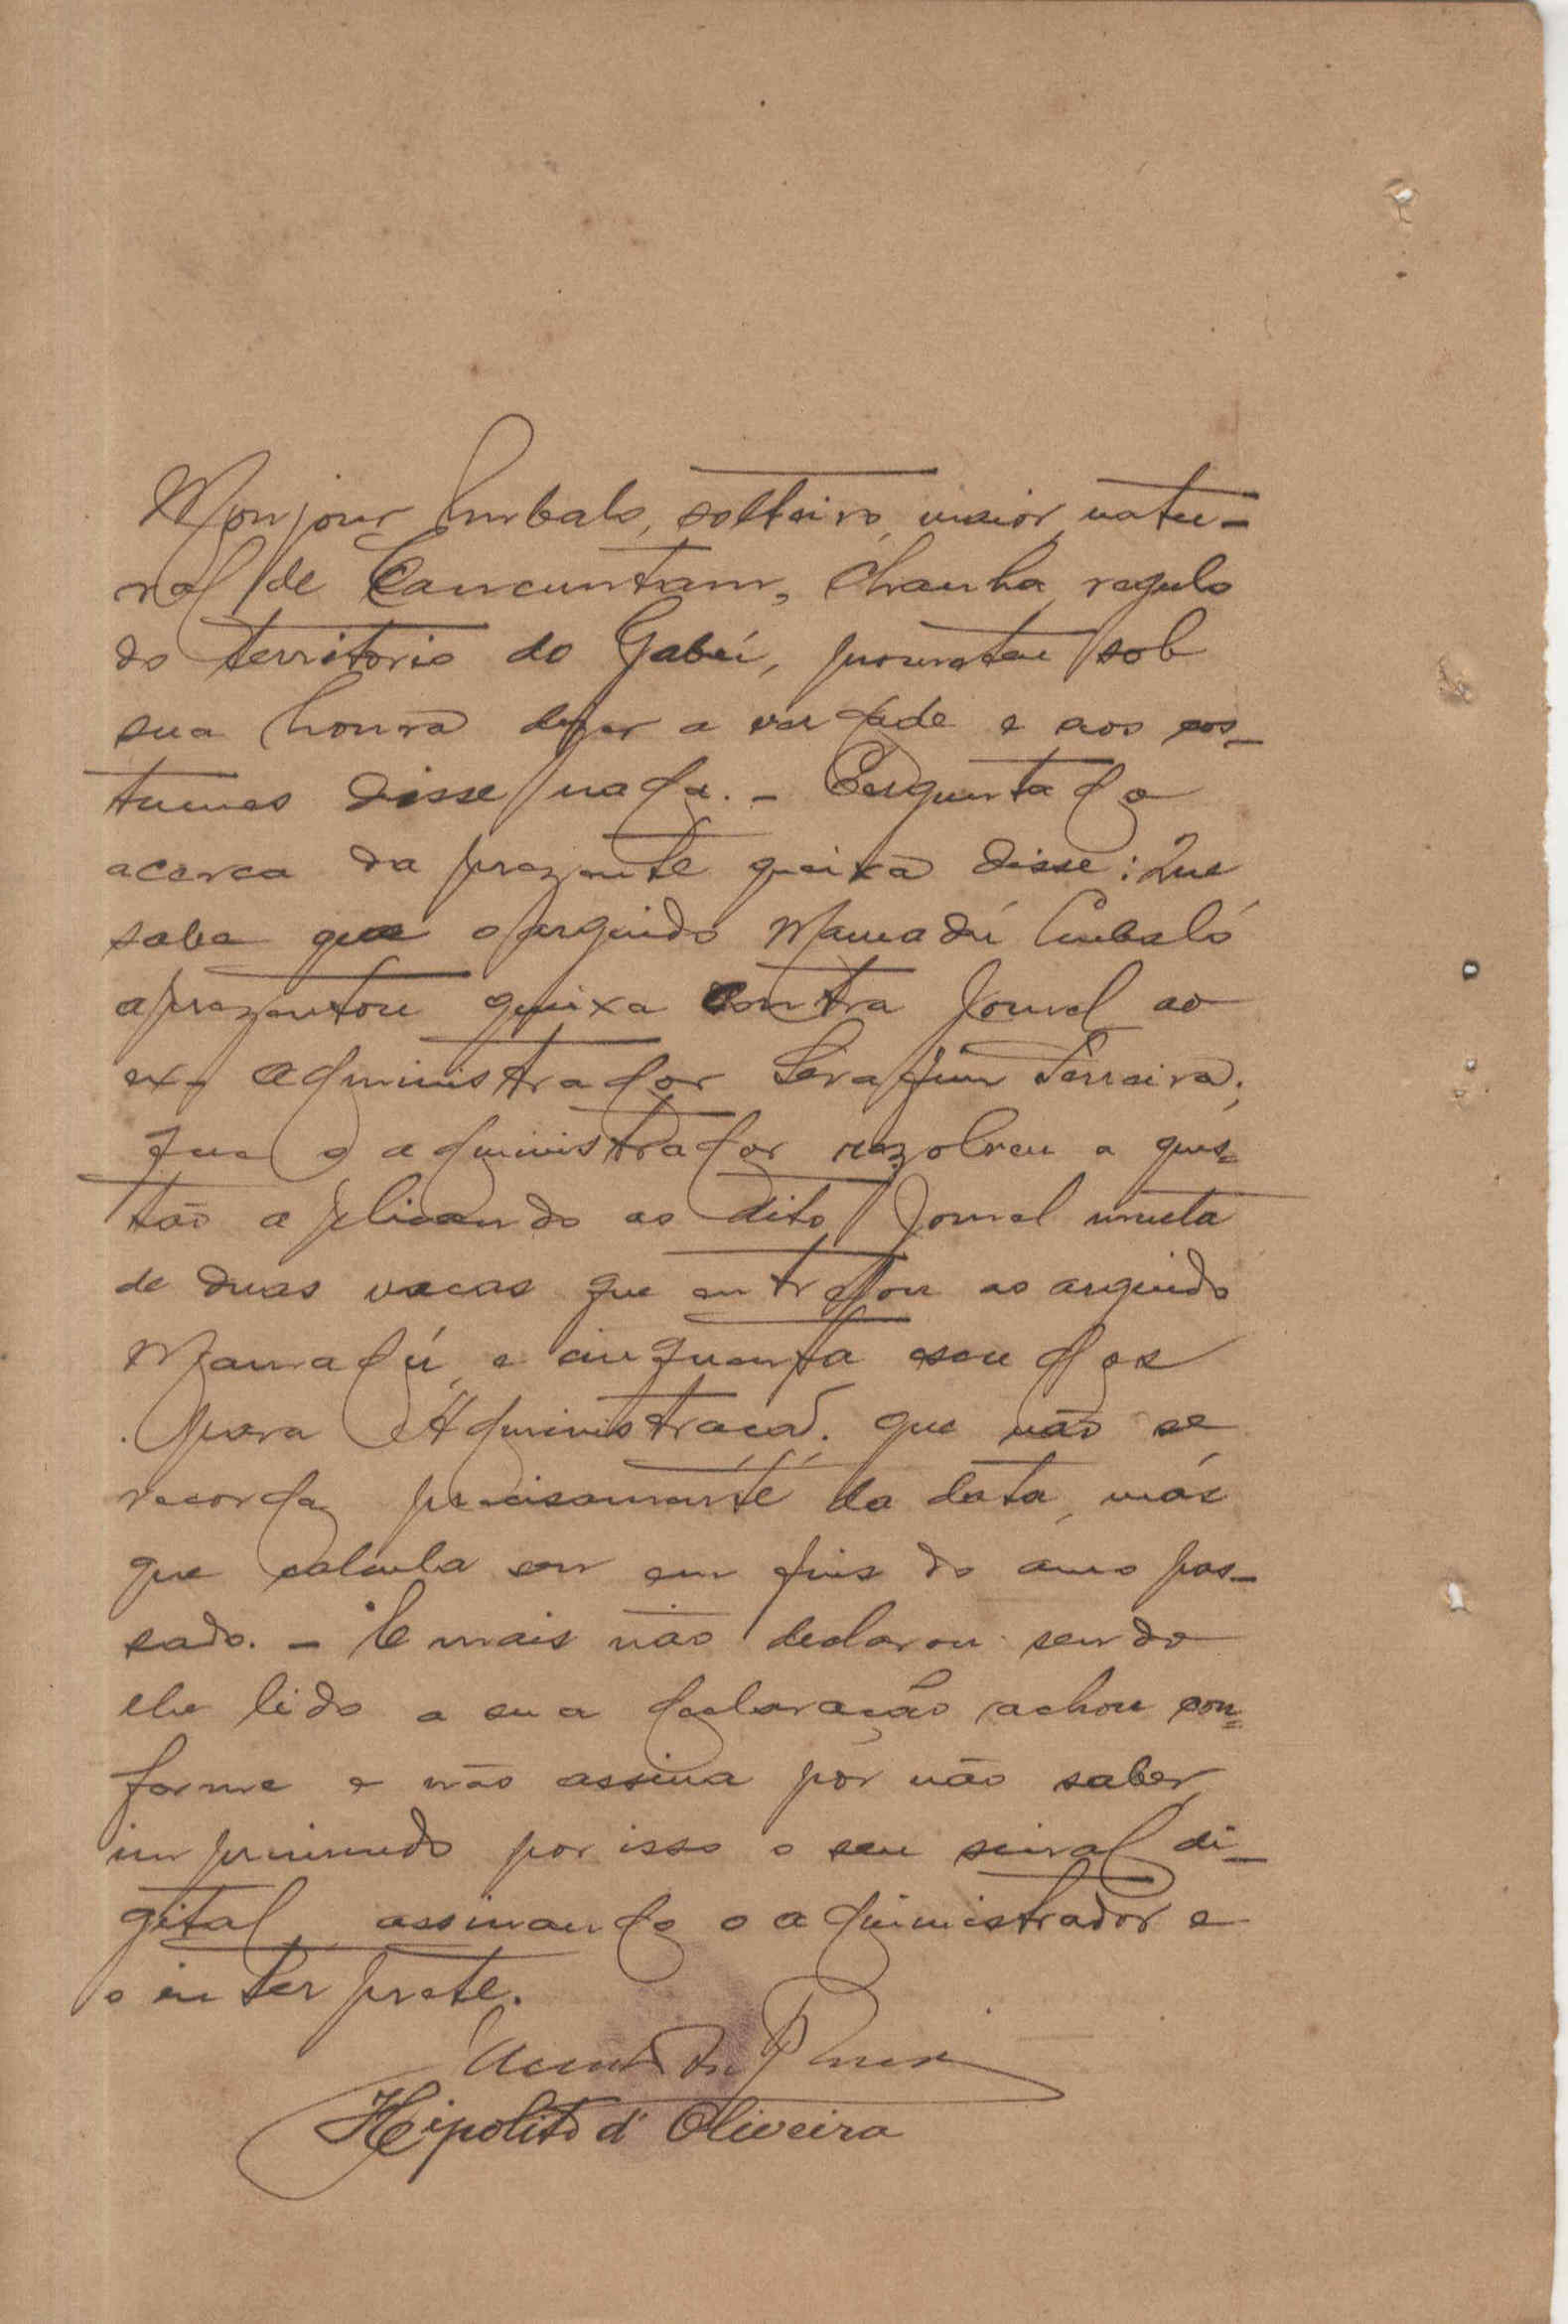 Monjour Embalo, solteiro, maior, natu-
ral de Cancuntam, Chanha, regulo
do territorio do Gabú, prometeu sob
sua honra dizer a verdade e aos cos-
tumes disse nada. - Perguntado
acerca da prezente queixa disse: Que
sabe que o arguido Mamadú Embaló
aprezentou queixa contra Jomel ao
ex-administrador Serafim Ferreira;
que o administrador rezolveu a ques-
tão aplicando ao dito Jomel multa
de duas vacas que entregou ao arguido
Mamadú, e cinquenta escudos
para Administracão. que não se
recorda precisamente da data, más
que calcula ser em fins do ano pas-
sado. - E mais não declarou sendo
lhe lido a sua declaração achou con=
forme e não assina por não saber,
imprimindo por isso o seu sinal di-
gital assinando o administrador e
o interprete.
Hipolito d'Oliveira